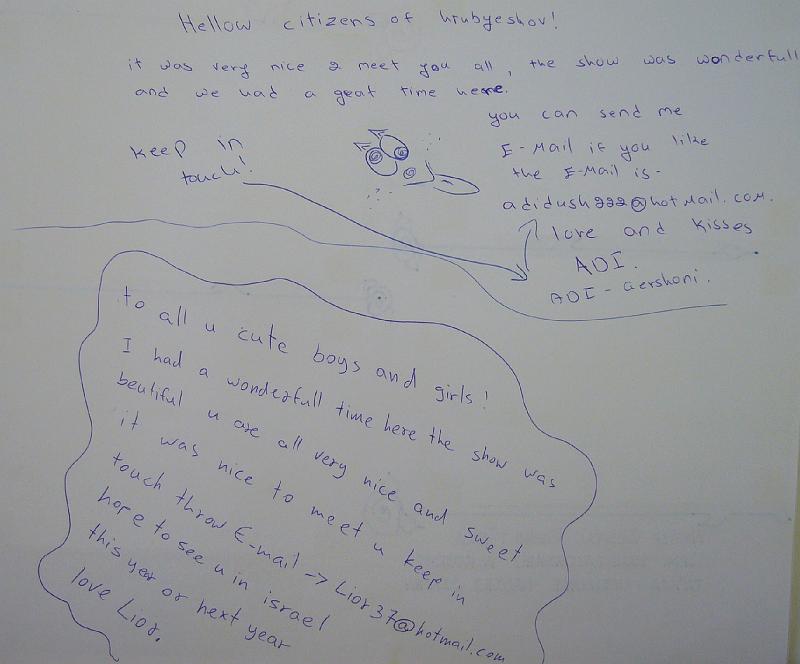 Hellow citizens of hrubyeshov!
it was very nice 2 meet you all, the show was wonderfull
and we had a geat time here.
you can send me
E-Mail if you like
the E-Mail is -
adidush222@hotmail.com.
love and kisses
ADI.
ADI - Gershoni.
keep in
touch!
to all u cute boys and girls!
I had a wonderfull time here the show was
beutiful u are all very nice and sweet
it was nice to meet u keep in
touch throw E-mail -> Lior37@hotmail.com
hope to see u in israel
this year or next year
love Lior.